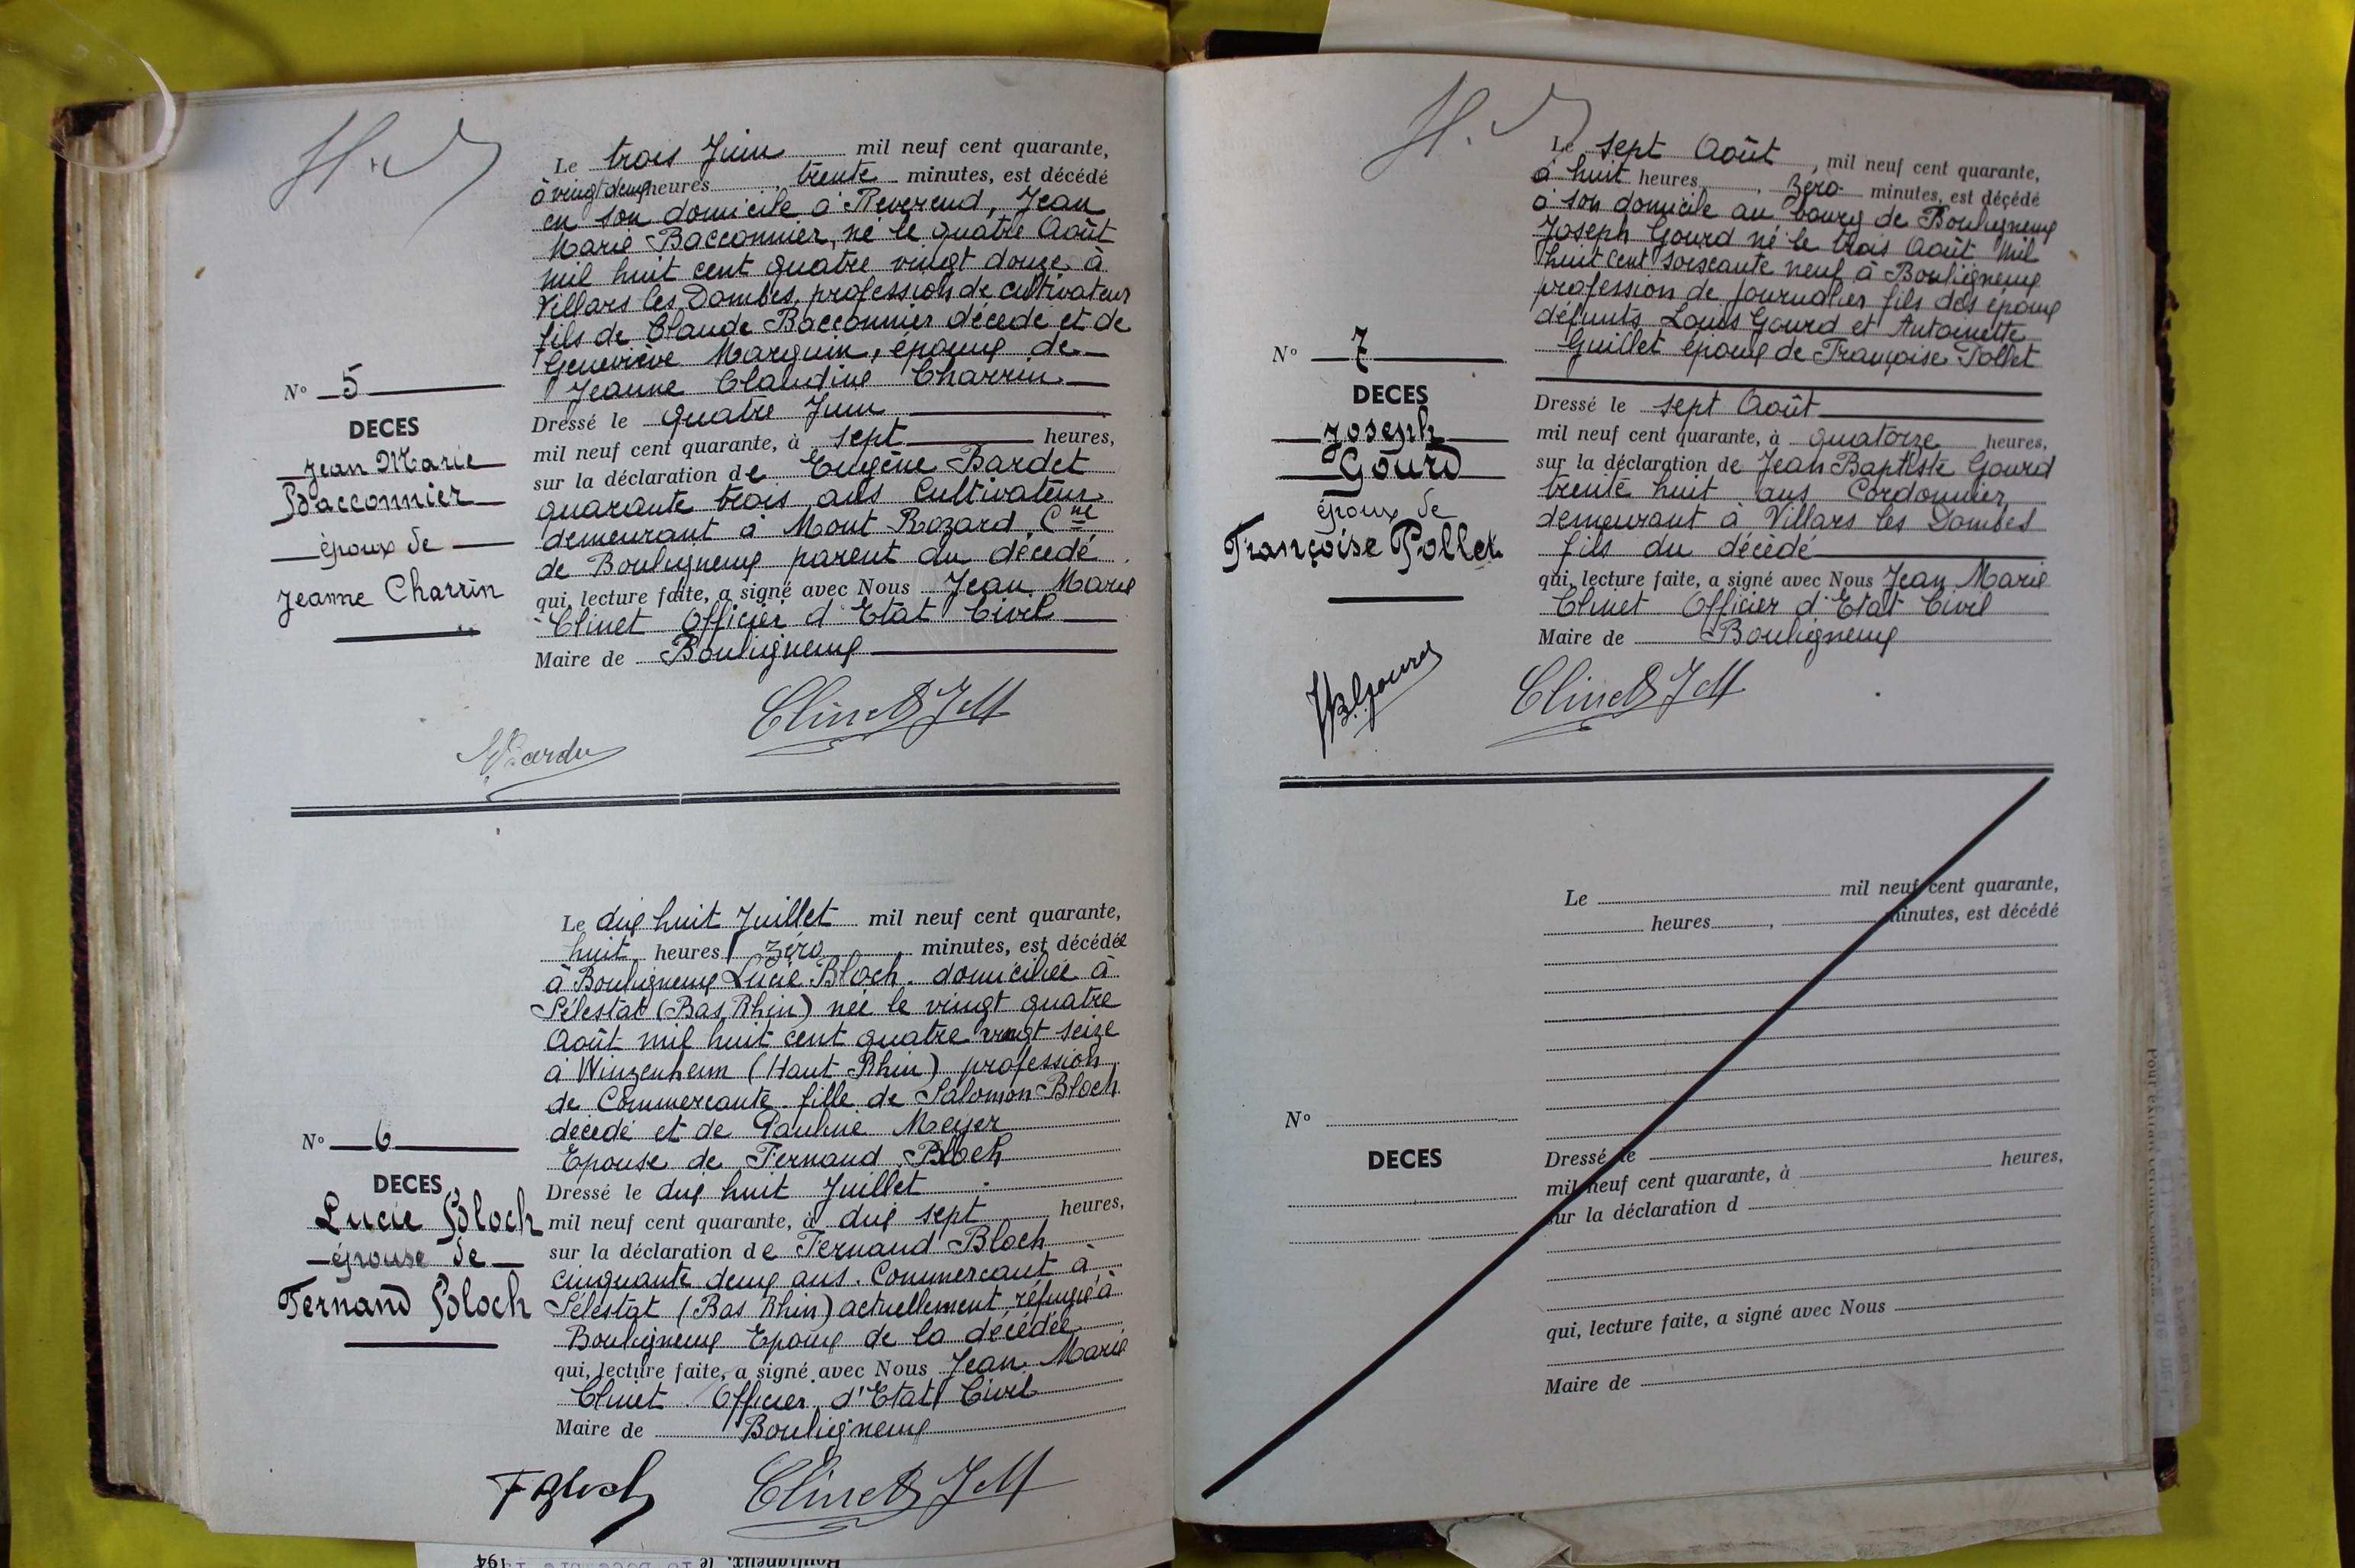 Le trois Juin mil neuf cent quarante,
à vingt deux heures, trente minutes, est décédé
en son domicile à Reverend, Jean
Marie Bacconnier, né le quatre Août
mil huit cent quatre vingt douze à
Villars les Dombes, profession de cultivateur
fils de Claude Bacconnier décédé et de
Geneviève Marguin, époux de
Jeanne Claudine Charrin
N° 5
DECES
Jean Marie
Bacconnier
époux de
Jeanne Charrin
Dressé le quatre Juin
mil neuf cent quarante, à sept heures,
sur la déclaration de Eugène Bardet
quarante trois ans Cultivateur
demeurant à Mont Rozard, Cne
de Bouligneux parent du décédé
qui, lecture faite, a signé avec Nous Jean Marie
Clinet Officier d'Etat Civil
Maire de Bouligneux
Clinet JM
Le dix huit Juillet mil neuf cent quarante,
huit heures, zéro minutes, est décédée
à Bouligneux Lucie Bloch domiciliée à
Sélestat (Bas Rhin) née le vingt quatre
Août mil huit cent quatre vingt seize
à Winzenheim (Haut Rhin) profession
de Commerçante fille de Salomon Bloch
décédé et de Pauline Meyer
Epouse de Fernand Bloch
N° 6
DECES
Lucie Bloch
épouse de
Fernand Bloch
Dressé le dix huit Juillet
mil neuf cent quarante, à dix sept heures,
sur la déclaration de Fernand Bloch
cinquante deux ans. Commerçant à
Sélestat (Bas Rhin) actuellement réfugié à
Bouligneux Epoux de la décédée
qui, lecture faite, a signé avec Nous Jean Marie
Clinet Officier d'Etat Civil
Maire de Bouligneux
F Bloch
Clinet JM
Le sept Août, mil neuf cent quarante,
à huit heures, zéro minutes, est décédé
à son domicile au bourg de Bouligneux
Joseph Gourd né le trois Août mil
huit cent soixante neuf à Bouligneux
profession de journalier fils des époux
défunts Louis Gourd et Antoinette
Guillet époux de Françoise Pollet
N° 7
DECES
Joseph
Gourd
époux de
Françoise Pollet
Dressé le sept Août
mil neuf cent quarante, à quatorze heures,
sur la déclaration de Jean Baptiste Gourd
trente huit ans Cordonnier
demeurant à Villars les Dombes
fils du décédé
qui, lecture faite, a signé avec Nous Jean Marie
Clinet Officier d'Etat Civil
Maire de Bouligneux
JB Gourd
Clinet JM
Le mil neuf cent quarante,
heures, minutes, est décédé
N°
DECES
Dressé le
mil neuf cent quarante, à heures,
sur la déclaration d
qui, lecture faite, a signé avec Nous
Maire de